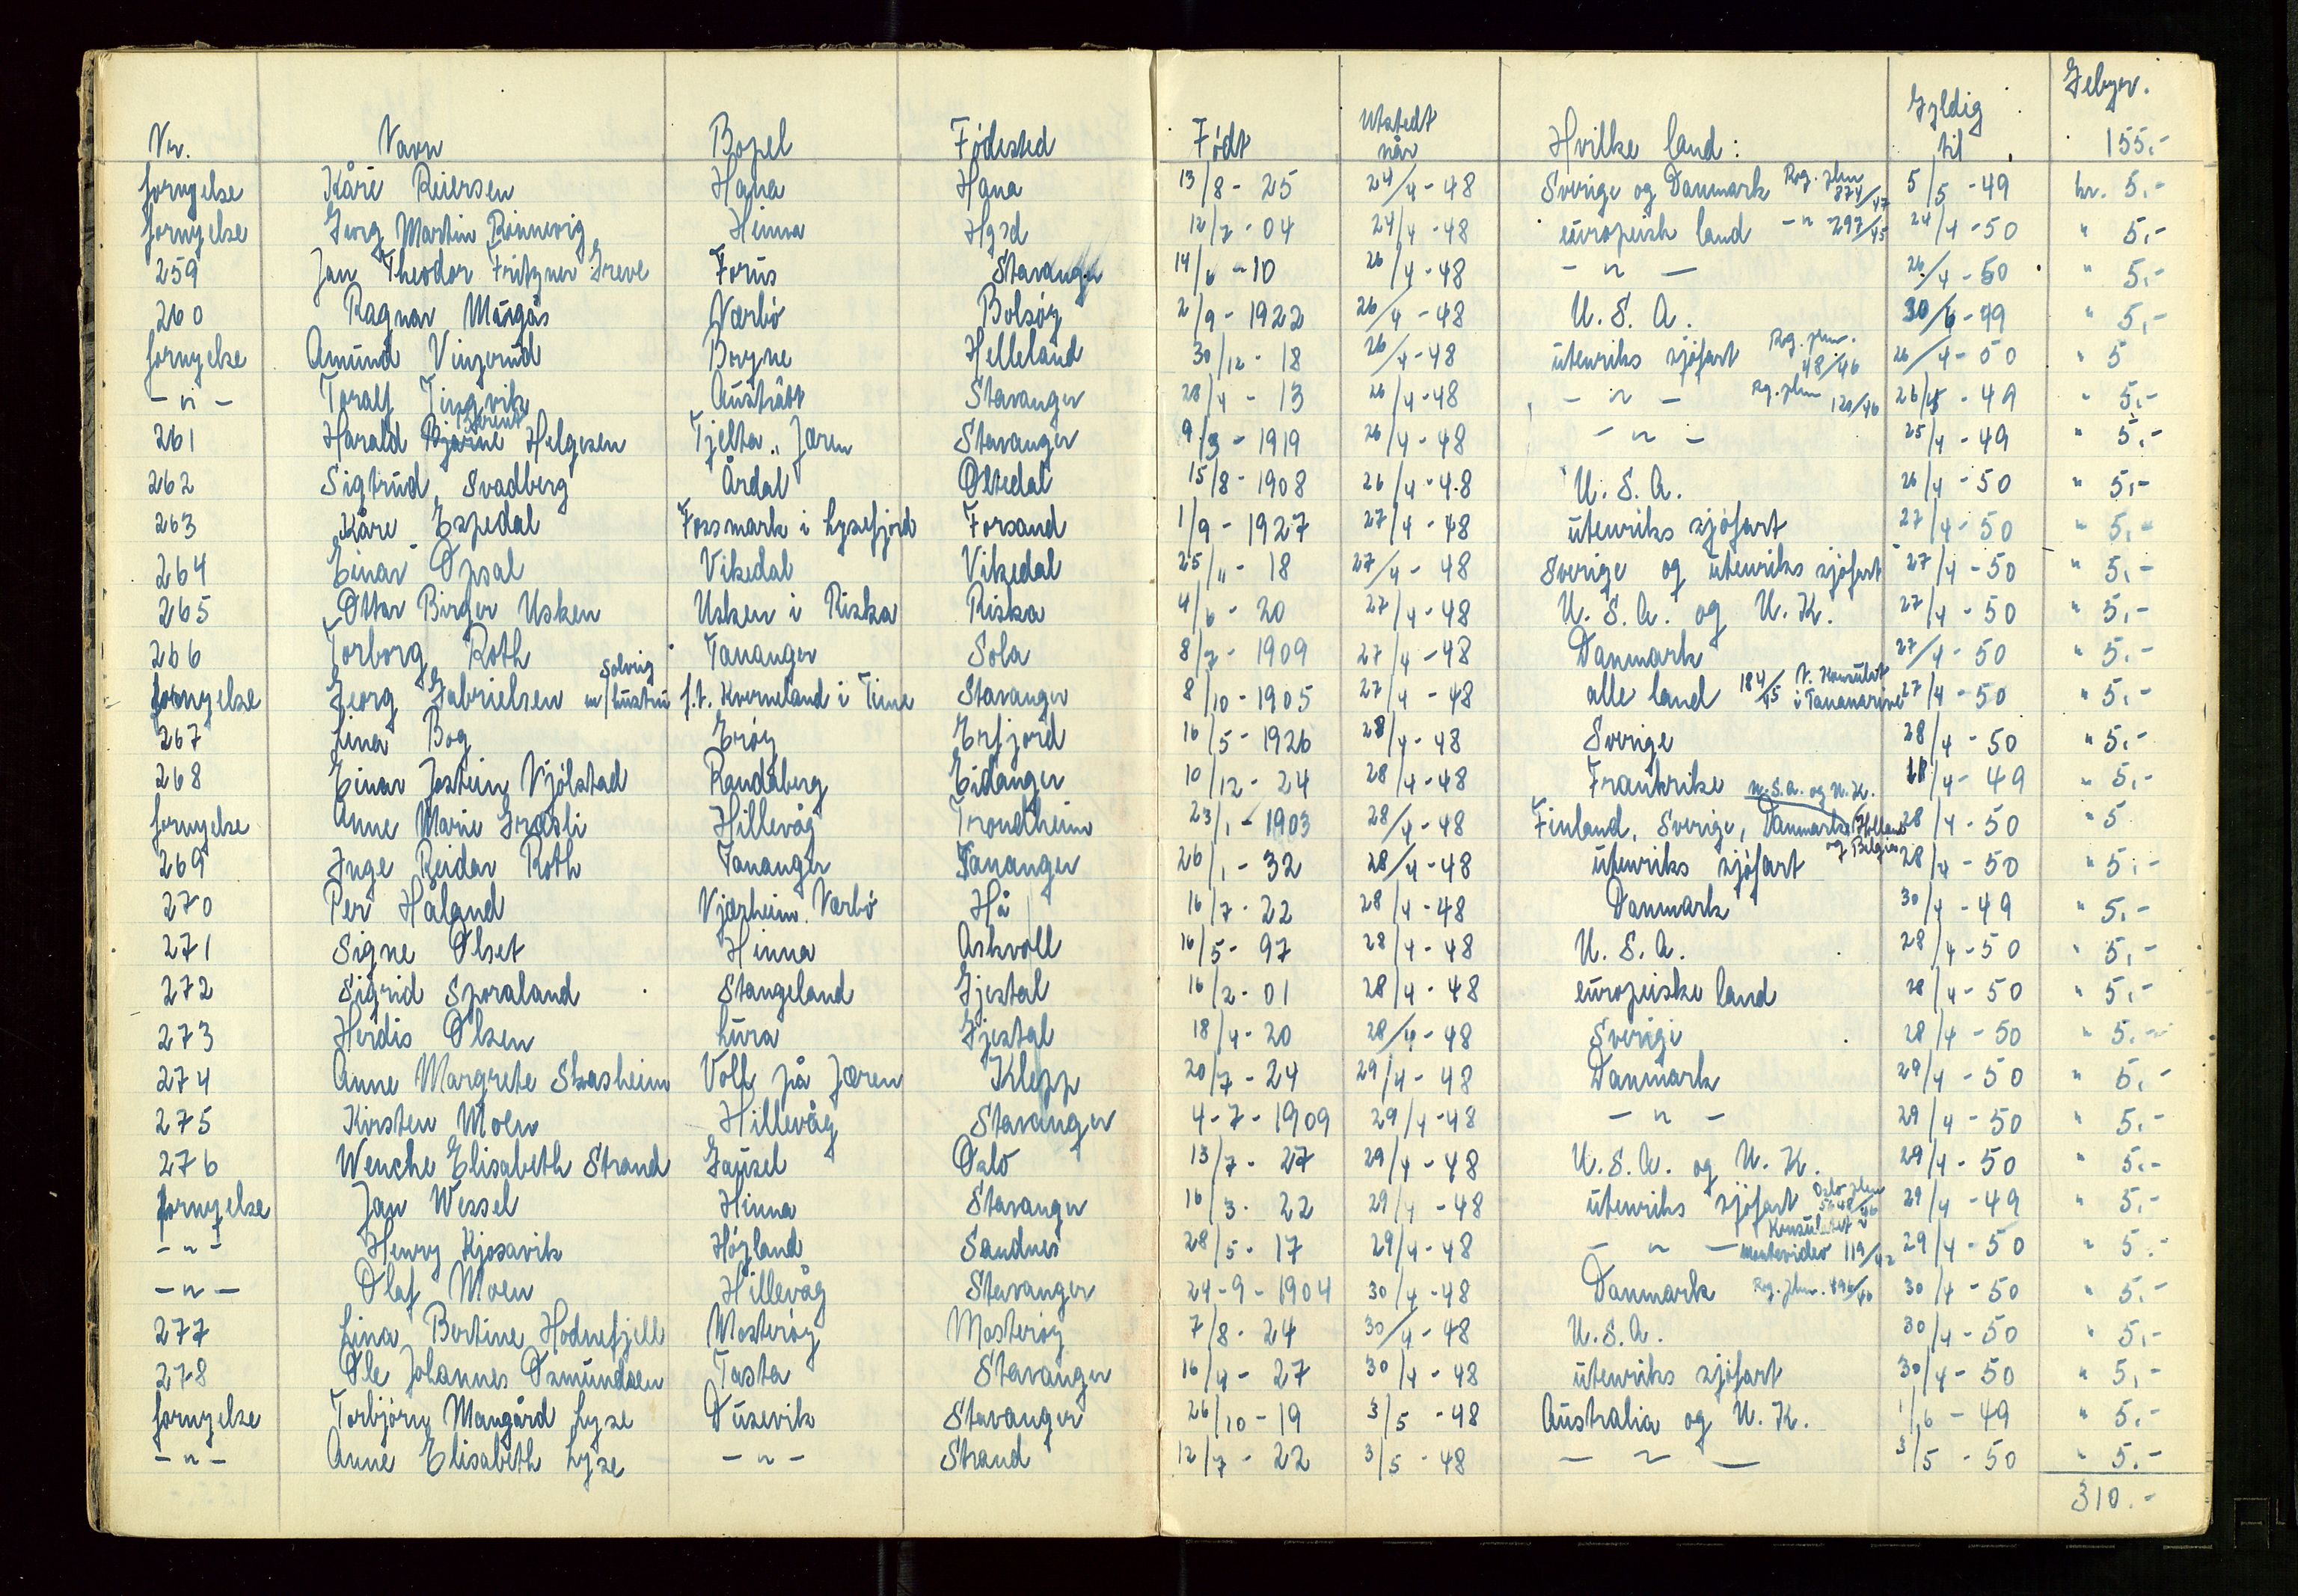 Nr. Navn Bopel Fødested Født Utstedt når Hvilke land: Gyldig til Gebyr.
155.-
fornyelse Kåre Reiersen Hana Hana 13/8 - 25 24/4 - 48 Sverige og Danmark Rog. jkm 874/47 5/5 - 49 kr. 5.-
fornyelse Georg Martin Rønnevig Hinna Hgsd 12/7 - 04 24/4 - 48 europeisk land - " - 297/45 24/4 - 50 " 5.-
259 Jan Theodor Fritzner Greve Forus Stavanger 14/6 - 10 26/4 - 48 - " - 26/4 - 50 " 5.-
260 Ragnar Mårgås Nærbö Bolsöy 2/9 - 1922 26/4 - 48 U.S.A. 30/6 - 49 " 5.-
fornyelse Amund Vinjerud Boryne Helleland 30/12 - 18 26/4 - 48 utenriks sjöfart Rog. jkm. 48/46 26/4 - 50 " 5
- " - Toralf Tingvik Austrått Stavanger 28/4 - 13 26/4 - 48 - " - Rg. jkm 120/46 26/4 - 49 " 5.-
261 Harald Bjarne Berent Helgesen Tjelta, Jæren Stavanger 9/3 - 1919 26/4 - 48 - " - 25/4 - 49 " 5.-
262 Sigtrud Svadberg Årdal Oltedal 15/8 - 1908 26/4 - 48 U.S.A. 26/4 - 50 " 5.-
263 Kåre Espedal Fossmark i Lysefjord Forsand 1/9 - 1927 27/4 - 48 utenriks sjöfart 27/4 - 50 " 5.-
264 Einar Opsal Vikedal Vikedal 25/11 - 18 27/4 - 48 Sverige og utenriks sjöfart 27/4 - 50 " 5.-
265 Ottar Birger Usken Usken i Riska Riska 4/6 - 20 27/4 - 48 U.S.A. og U.K. 27/4 - 50 " 5.-
266 Torborg Roth Tananger Sola 8/7 - 1909 27/4 - 48 Danmark 27/4 - 50 " 5.-
fornyelse Georg Gabrielsen m/hustru Solveig f.t. Kverneland i Time Stavanger 8/10 - 1905 27/4 - 48 alle land 184/45 N. Konsulat i Tananarive 27/4 - 50 " 5.-
267 Lina Bog Eröy Erfjord 16/5 - 1926 28/4 - 48 Sverige 28/4 - 50 " 5.-
268 Einar Jostein Njölstad Randaberg Eidanger 10/12 - 24 28/4 - 48 Frankrike 28/4 - 49 " 5.-
fornyelse Anne Marie Græsli Hillevåg Trondheim 23/1 - 1903 28/4 - 48 Finland, Sverige, Danmark, U.S.A. og U.K. Holland og Belgia 28/4 - 50 " 5
269 Inge Reidar Roth Tananger Tananger 26/1 - 32 28/4 - 48 utenriks sjöfart 28/4 - 50 " 5.-
270 Per Håland Njærheim, Nærbö Hå 16/7 - 22 28/4 - 48 Danmark 30/4 - 49 " 5.-
271 Signe Olset Hinna Askvoll 16/5 - 97 28/4 - 48 U.S.A. 28/4 - 50 " 5.-
272 Sigrid Sporaland Stangeland Gjestal 16/2 - 01 28/4 - 48 europeiske land 28/4 - 50 " 5.-
273 Herdis Olsen Lura Gjestal 18/4 - 20 28/4 - 48 Sverige 28/4 - 50 " 5.-
274 Anne Margrete Skasheim Voll på Jæren Klepp 20/7 - 24 29/4 - 48 Danmark 29/4 - 50 " 5.-
275 Kirsten Moen Hillevåg Stavanger 4 - 7 - 1909 29/4 - 48 - " - 29/4 - 50 " 5.-
276 Wenche Elisabeth Strand Gausel Oslo 13/7 - 27 29/4 - 48 U.S.A. og U.K. 29/4 - 50 " 5.-
fornyelse Jan Wessel Hinna Stavanger 16/3 - 22 29/4 - 48 utenriks sjöfart Oslo jkm 29/4 - 49 " 5.-
- " - Henry Kjosavik Högland Sandnes 28/5 - 17 29/4 - 48 - " - Konsulatet i Montevideo 119/42 29/4 - 50 " 5.-
- " - Olaf Moen Hillevåg Stavanger 24 - 9 - 1904 30/4 - 48 Danmark Rog. jkm. 896/46 30/4 - 50 " 5.-
277 Lina Bertine Hodnefjell Mosteröy Mosteröy 7/8 - 24 30/4 - 48 U.S.A. 30/4 - 50 " 5.-
278 Ole Johannes Osmundsen Tasta Stavanger 16/4 - 27 30/4 - 48 utenriks sjöfart 30/4 - 50 " 5.-
fornyelse Torbjörn Mangård Lyse Dusevik Stavanger 26/10 - 19 3/5 - 48 Australia og U.K. 1/6 - 49 " 5.-
- " - Anne Elisabeth Lyse - " - Strand 12/7 - 22 3/5 - 48 - " - 3/5 - 50 " 5.-
310.-